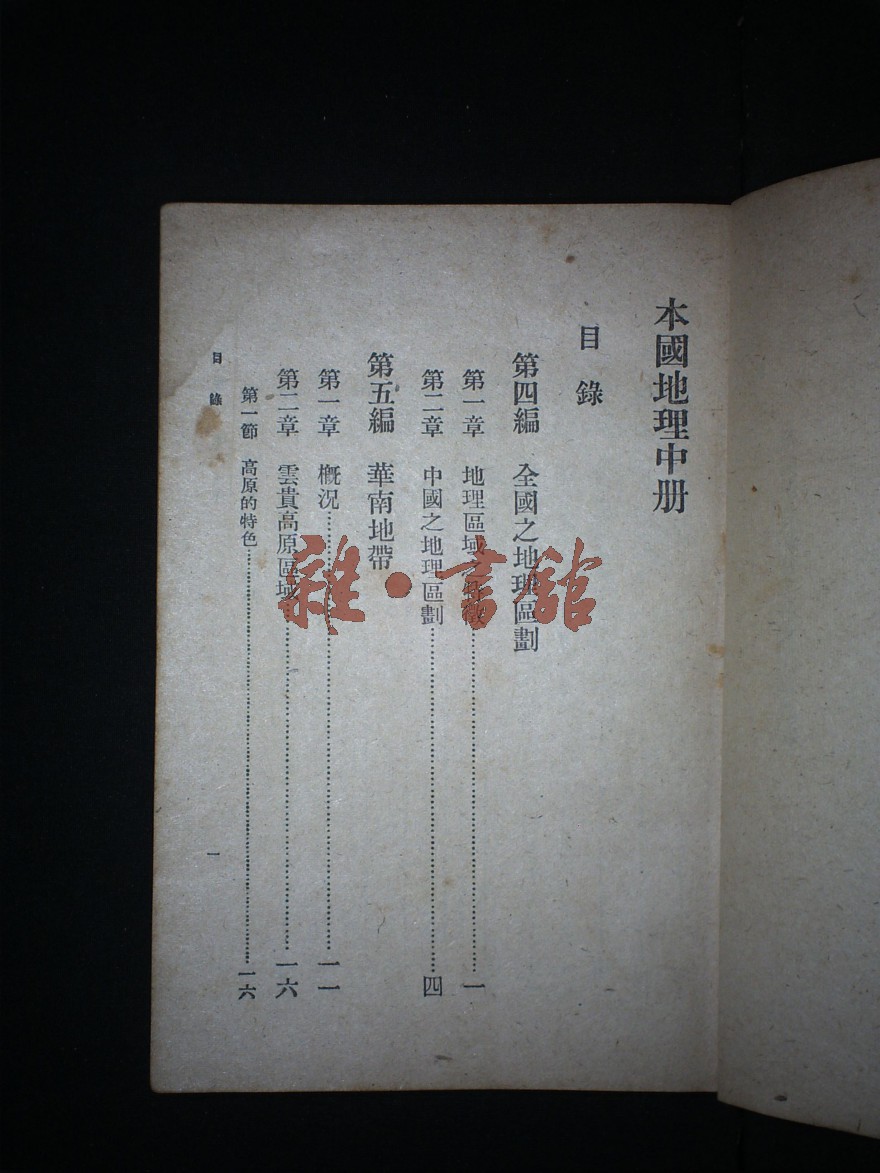 本國地理中册
目錄
第四編 全國之地理區劃
第一章 地理區域之特徵……一
第二章 中國之地理區劃……四
第五編 華南地帶
第一章 概況……一一
第二章 雲貴高原區域……一六
第一節 高原的特色……一六
目錄
一
雜·書舘